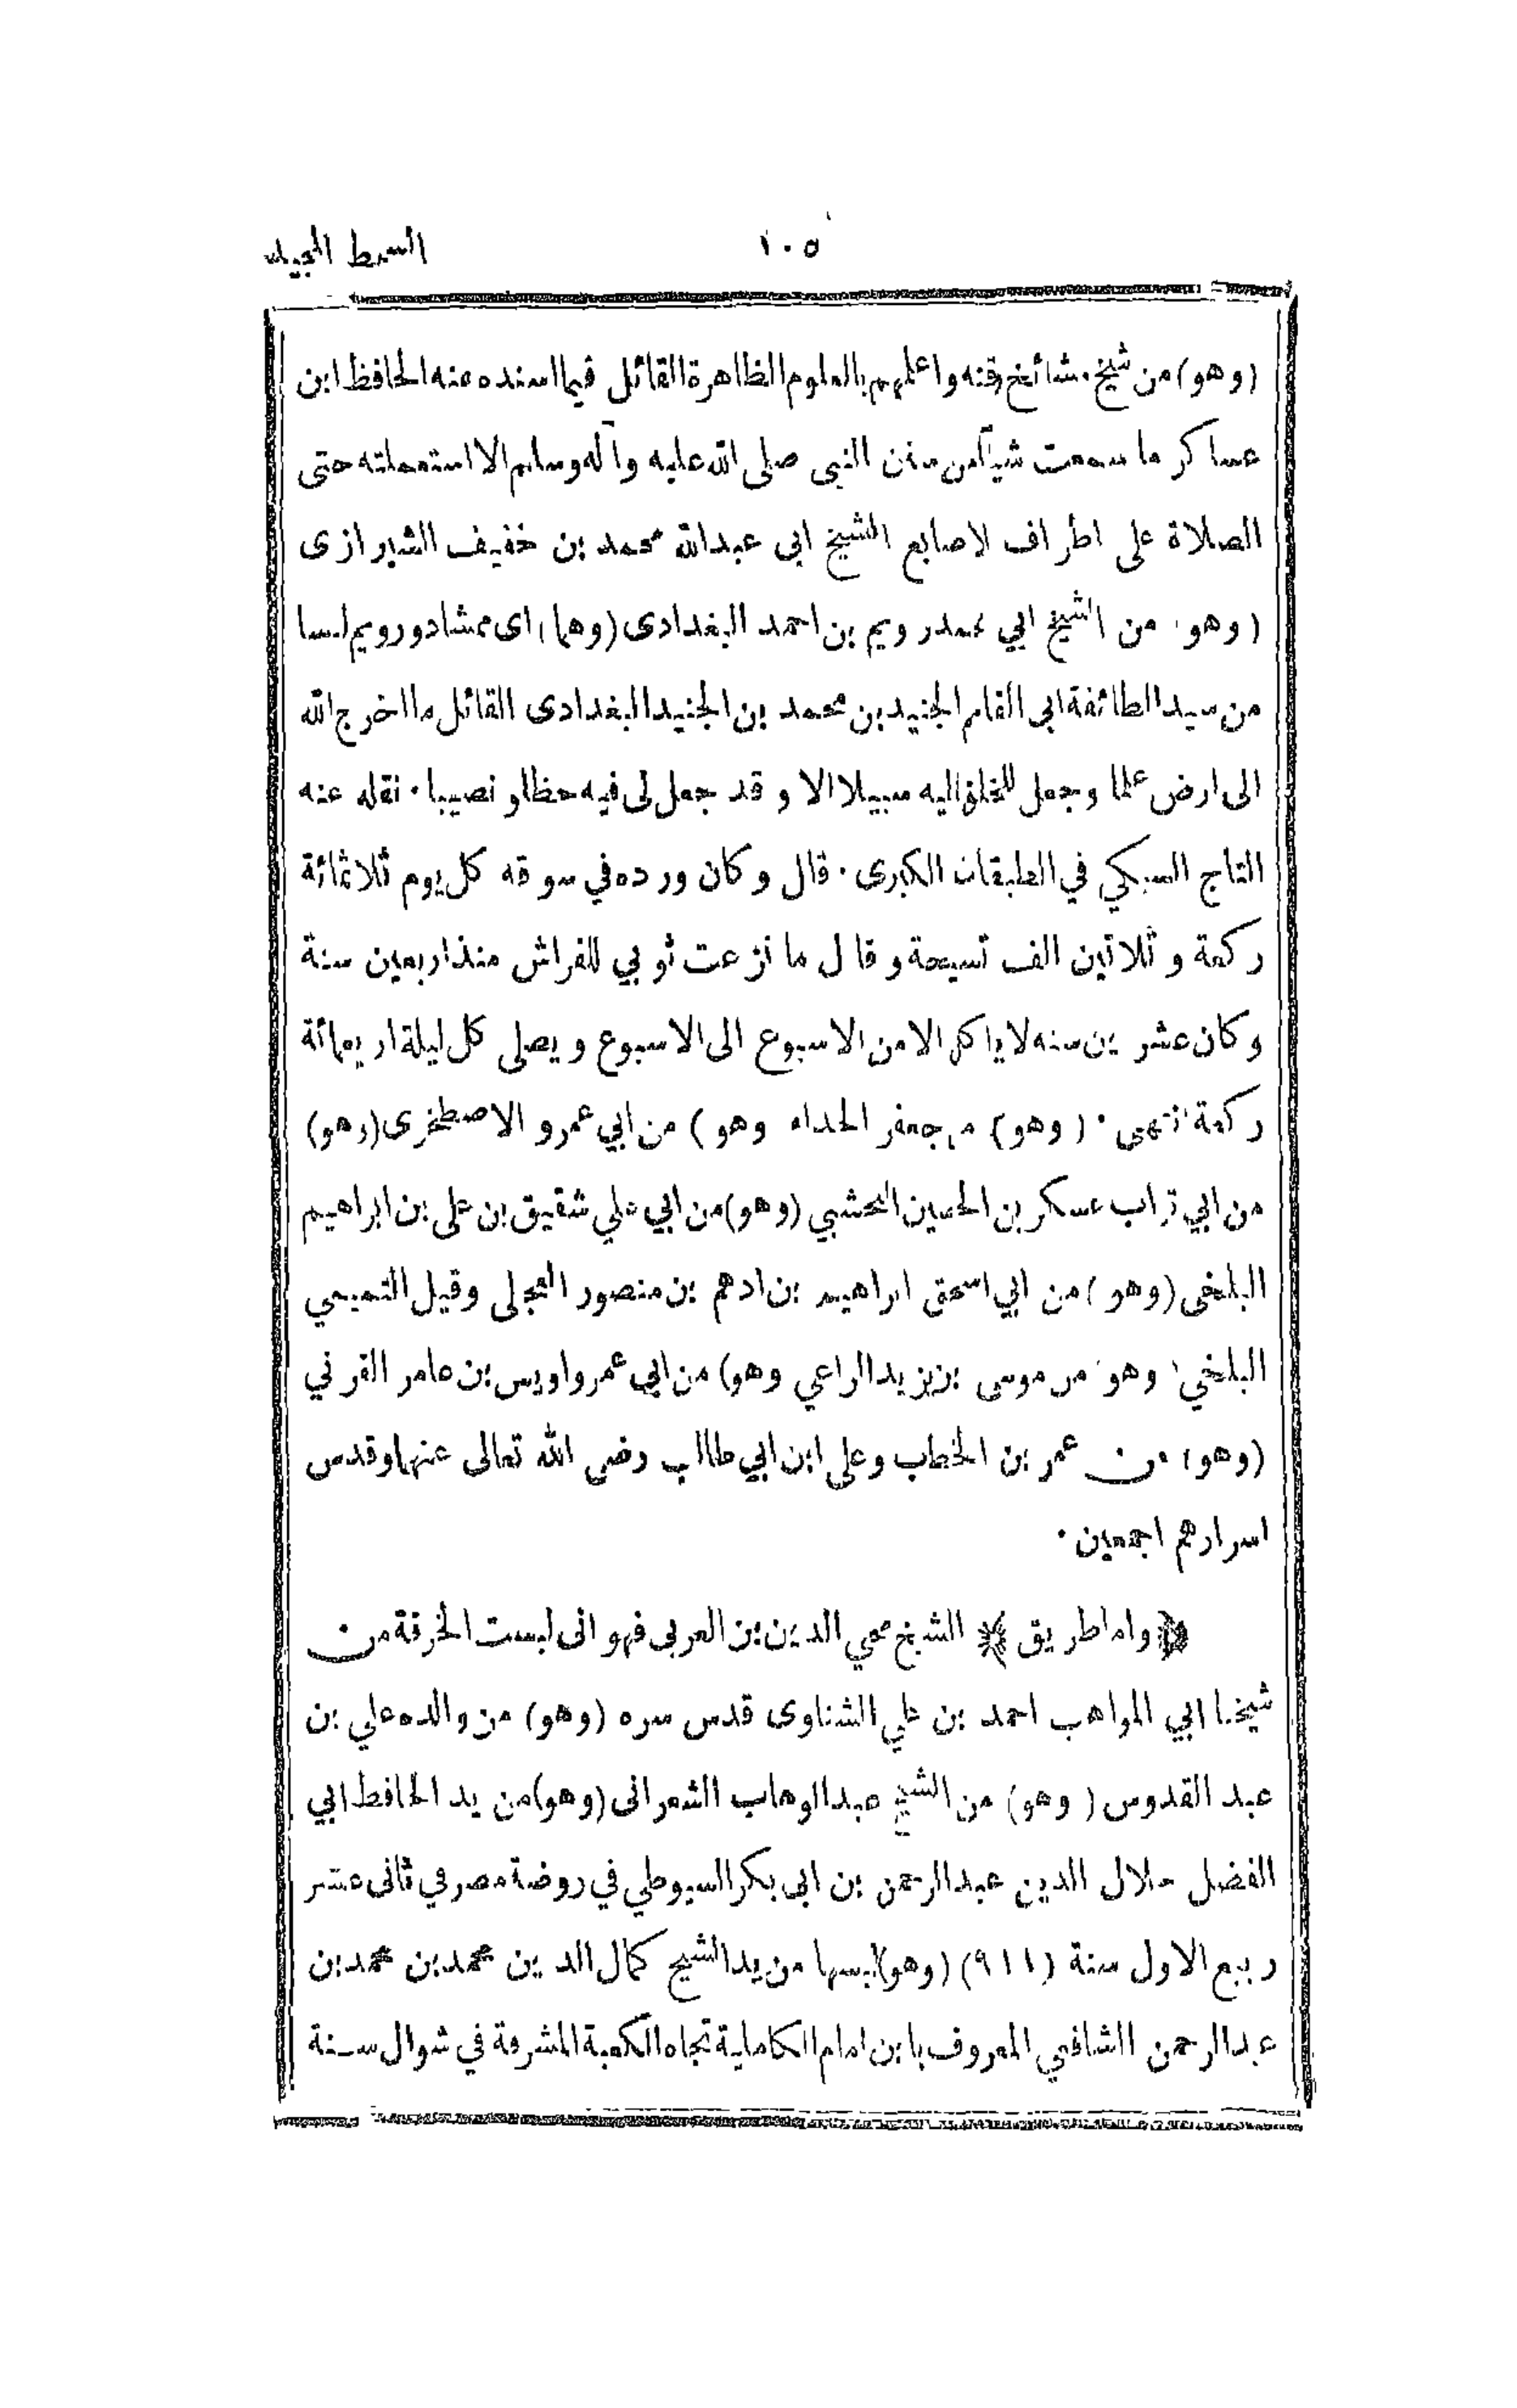 ١٠٥
السمط المجيد
(وهو) من شيخ مشائخ وقته واعلمهم بالعلوم الظاهرة القائل فيما اسنده عنه الحافظ ابن
عساكر ما سمعت شيأ من سنن النبى صلى الله عليه وآله وسلم الا استعملته حتى
الصلاة على اطراف لاصابع الشيخ ابى عبدالله محمد بن خفيف الشيرازى
(وهو) من الشيخ ابي محمد رويم بن احمد البغدادى (وهما) اى ممشاد ورويم لبسا
من سيد الطائفة ابى القاسم الجنيد بن محمد بن الجنيد البغدادى القائل ما اخرج الله
الى ارض علما وجعل للخلق اليه سبيلا الا وقد جعل لى فيه حظا و نصيبا ٠ نقله عنه
التاج السبكي في الطبقات الكبرى ٠ قال وكان ورده في سوقه كل يوم ثلاثمائة
ركعة و ثلاثين الف تسبيحة و قال ما نزعت ثوبي للفراش منذ اربعين سنة
وكان عشرين سنه لا ياكل الا من الاسبوع الى الاسبوع و يصلى كل ليلة اربعمائة
ركعة انتهى ٠ (وهو) من جعفر الحداد وهو) من ابي عمرو الاصطخرى (وهو)
من ابي تراب عسكر بن الحسين النخشبي (وهو) من ابي علي شقيق بن على بن ابراهيم
البلخى (وهو) من ابي اسحق ابراهيم بن ادهم بن منصور العجلى وقيل التميمي
البلخي (وهو) من موسى بن يزيد الراعي وهو) من ابي عمرو اويس بن عامر القرني
(وهو) من عمر بن الخطاب وعلى ابن ابي طالب رضى الله تعالى عنهما وقدس
اسرارهم اجمعين ٠
واما طريق الشيخ محي الدين بن العربى فهو انى لبست الخرقة من
شيخنا ابي المواهب احمد بن علي الشناوى قدس سره (وهو) من والده علي بن
عبد القدوس (وهو) من الشيخ عبد الوهاب الشعرانى (وهو) من يد الحافظ ابي
الفضل جلال الدين عبدالرحمن بن ابى بكر السيوطي في روضة مصر في ثانى عشر
ربيع الاول سنة (٩١١) (وهو) لبسها من يد الشيخ كمال الدين محمد بن محمد بن
عبدالرحمن الشافعي المعروف بابن امام الكاملية تجاه الكعبة المشرفة في شوال سنة